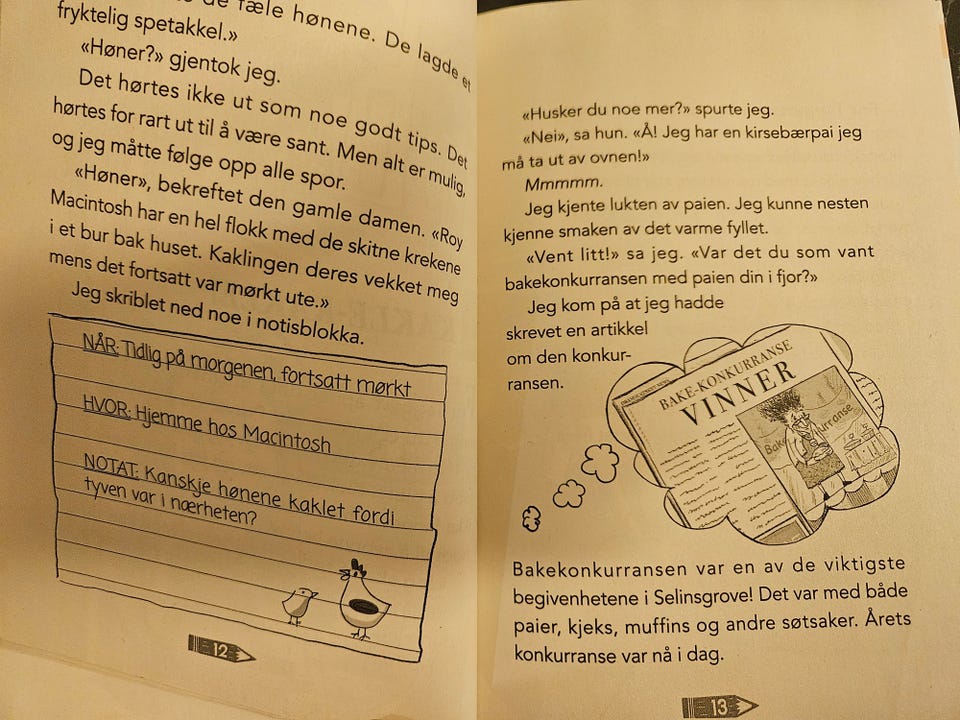 de fæle hønene. De lagde et
fryktelig spetakkel.»
«Høner?» gjentok jeg.
Det hørtes ikke ut som noe godt tips. Det
hørtes for rart ut til å være sant. Men alt er mulig,
og jeg måtte følge opp alle spor.
«Høner», bekreftet den gamle damen. «Roy
Macintosh har en hel flokk med de skitne krekene
i et bur bak huset. Kaklingen deres vekket meg
mens det fortsatt var mørkt ute.»
Jeg skriblet ned noe i notisblokka.
NÅR: Tidlig på morgenen, fortsatt mørkt
HVOR: Hjemme hos Macintosh
NOTAT: Kanskje hønene kaklet fordi
tyven var i nærheten?
12
«Husker du noe mer?» spurte jeg.
«Nei», sa hun. «Å! Jeg har en kirsebærpai jeg
må ta ut av ovnen!»
Mmmmm.
Jeg kjente lukten av paien. Jeg kunne nesten
kjenne smaken av det varme fyllet.
«Vent litt!» sa jeg. «Var det du som vant
bakekonkurransen med paien din i fjor?»
Jeg kom på at jeg hadde
skrevet en artikkel
om den konkur-
ransen.
BAKE-KONKURRANSE
VINNER
Bakekonkurransen var en av de viktigste
begivenhetene i Selinsgrove! Det var med både
paier, kjeks, muffins og andre søtsaker. Årets
konkurranse var nå i dag.
13